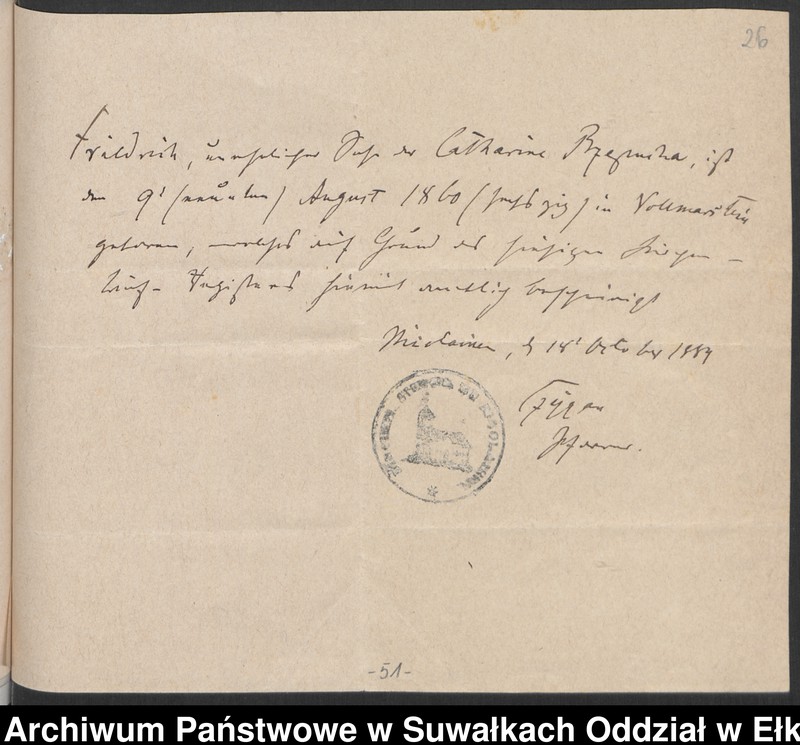 26
Friedrich, unehelicher Sohn der Catharine, ist
den 9t (neunten) August 1860 (sechszig) in Vollmarstein
geboren, welches auf Grund des hiesigen Kirchen-
buch-Registers hiermit amtlich bescheinigt
Nicolaiken, d 18t October 1889
Czygan
Pfarrer.
-51-
Archiwum Państwowe w Suwałkach Oddział w Ełk